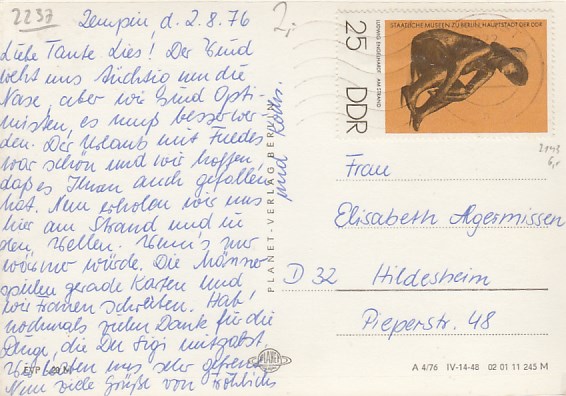 2237
Zempin, d. 2.8.76
Liebe Tante Lies! Der Wind
weht uns tüchtig um die
Nase, aber wir sind Opti-
misten, es muß besser wer
den. Der Urlaub mit Friedes
war schön und wir hoffen,
daß es Ihnen auch gefallen
hat. Nun erholen wir uns
hier am Strand und in
den Wellen. Wenn's nur
wärmer würde. Die Männer
spielen gerade Karten und
wir Frauen schreiben. Hab'
nochmals vielen Dank für die
Dinge, die Du Sigi mitgabst.
Wir haben uns sehr gefreut.
Nun viele Grüße von Fröhlichs
und
EVP
PLANET-VERLAG BERLIN
PLANET
2,-
STAATLICHE MUSEEN ZU BERLIN, HAUPTSTADT DER DDR
LUDWIG ENGELHARDT · AM STRAND
25
DDR
2143
6,-
Frau
Elisabeth Algermissen
D 32 Hildesheim
Pieperstr. 48
A 4/76 IV-14-48 02 01 11 245 M